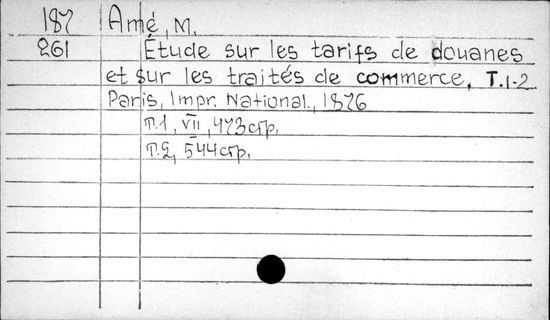 187 Amé, M.
261 Étude sur les tarifs de douanes
et sur les traités de commerce, T.1-2
Paris, Impr. National., 1876
Т.1, VII, 473 стр.
Т.2, 544 стр.